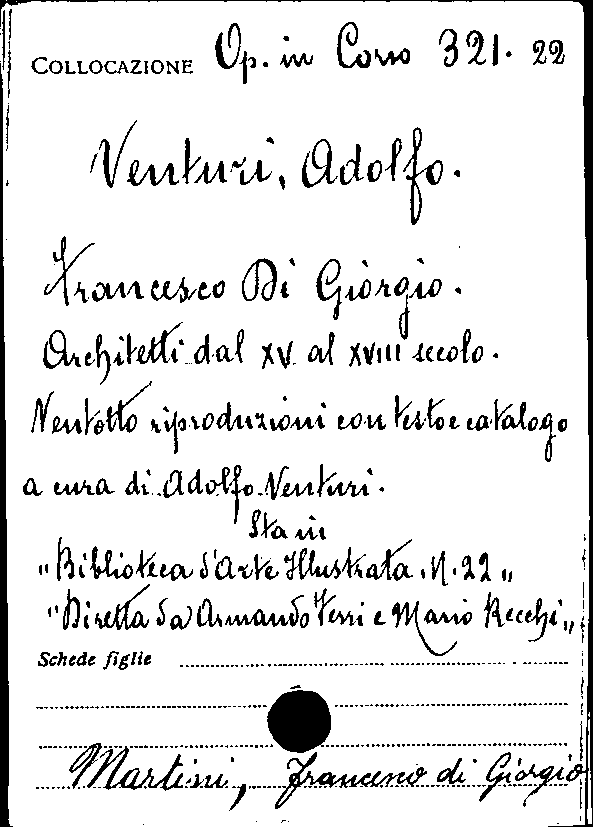 COLLOCAZIONE Op. in Corso 321. 22
Venturi, Adolfo.
Francesco Di Giorgio.
Architetti dal XV al XVIII secolo.
Ventotto riproduzioni con testo e catalogo
a cura di Adolfo Venturi.
Sta in
"Biblioteca d'Arte Illustrata. N. 22"
"Diretta da Armando Ferri e Mario Recchi"
Schede figlie
Martini, Francesco di Giorgio